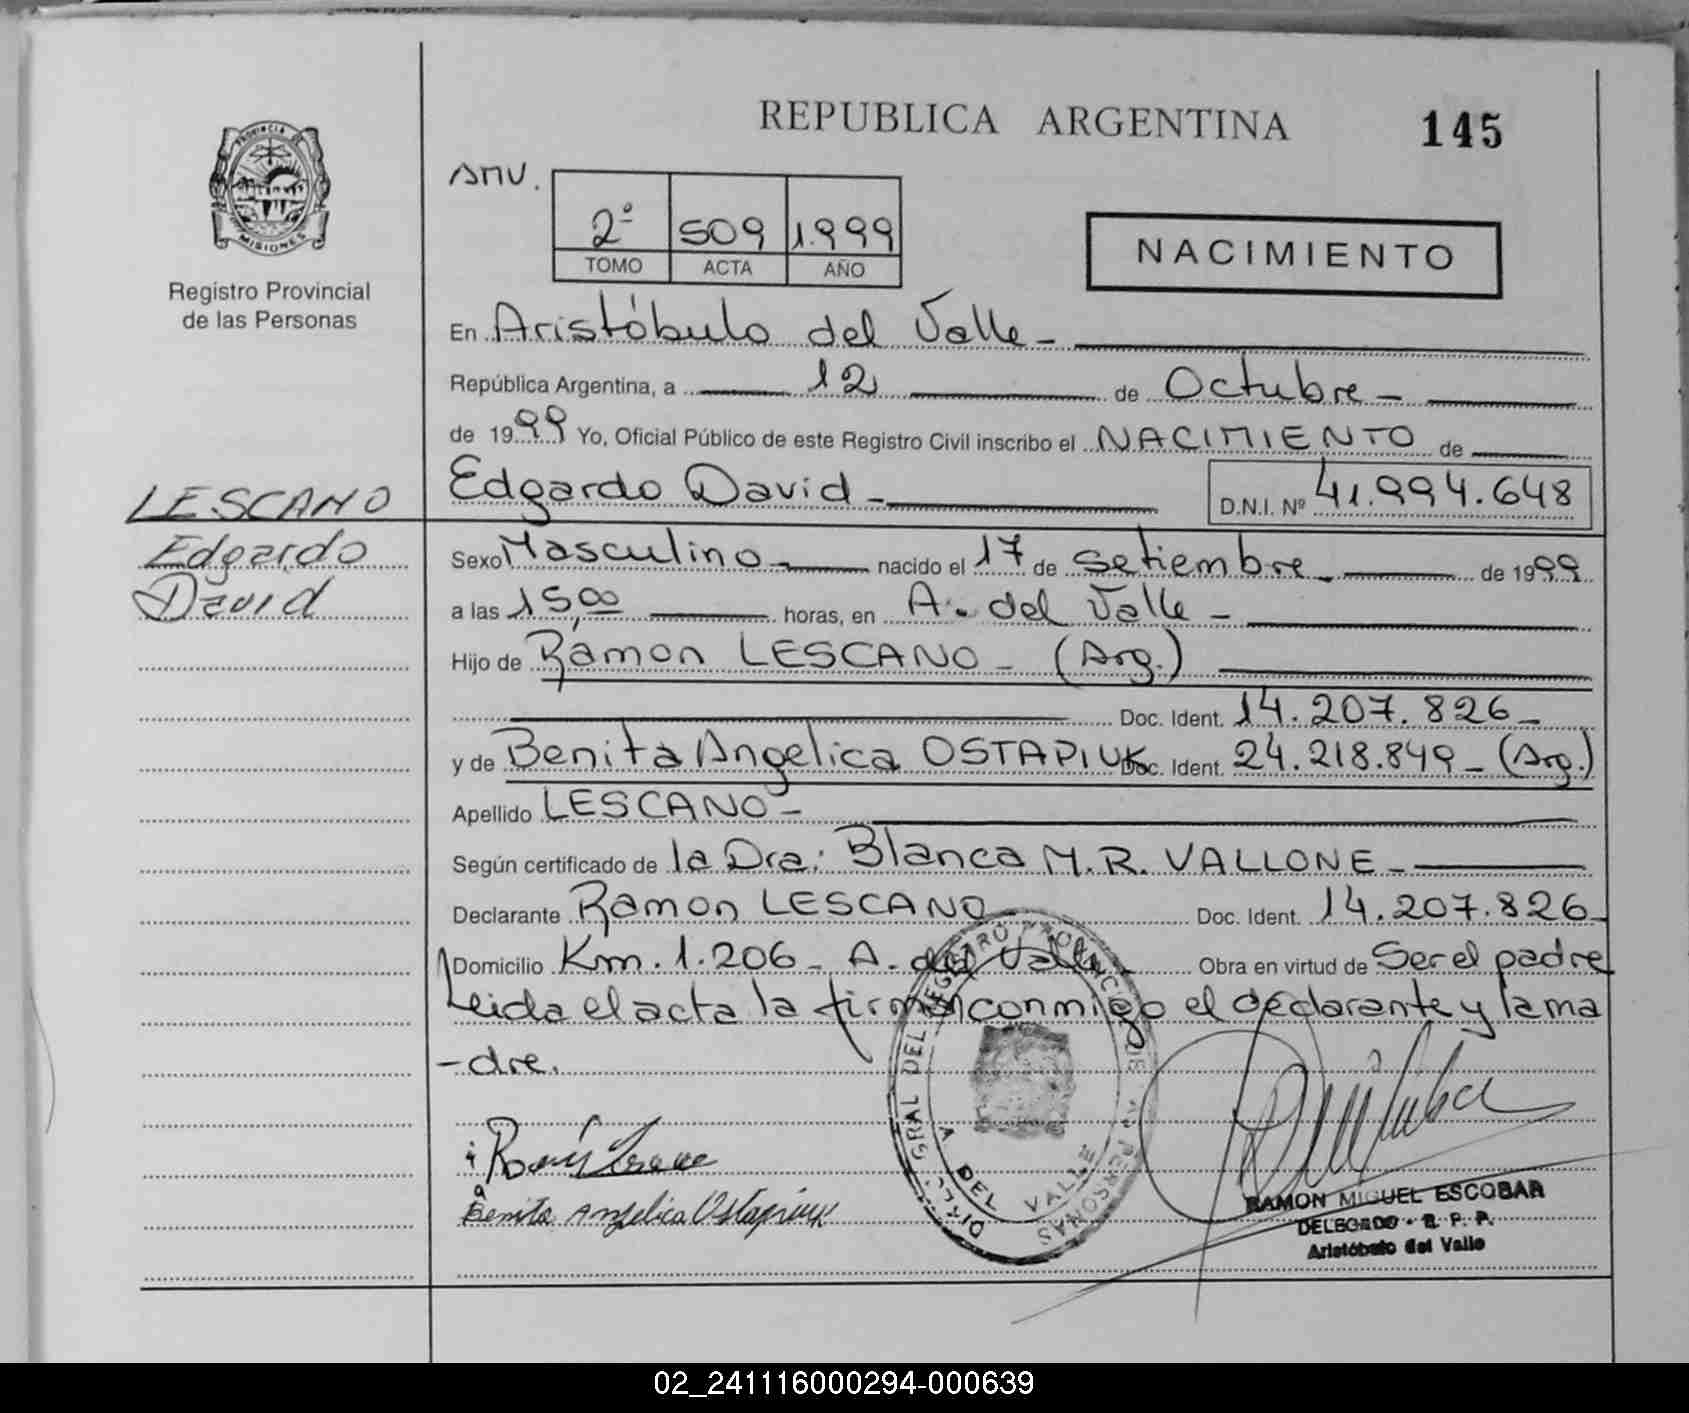 REPUBLICA ARGENTINA
145
PROVINCIA DE
MISIONES
Registro Provincial
de las Personas
AMV.
2º 509 1.999
TOMO ACTA AÑO
NACIMIENTO
En Aristóbulo del Valle -
República Argentina, a 12 de Octubre -
de 1999 Yo, Oficial Público de este Registro Civil inscribo el NACIMIENTO de
LESCANO
Edgardo
David
Edgardo David - D.N.I. Nº 41.994.648
Sexo Masculino - nacido el 17 de setiembre - de 1999
a las 15,00 horas, en A. del Valle -
Hijo de Ramon LESCANO - (Arg.)
Doc. Ident. 14.207.826 -
y de Benita Angelica OSTAPIUK Doc. Ident. 24.218.849 - (Arg.)
Apellido LESCANO -
Según certificado de la Dra: Blanca M.R. VALLONE -
Declarante Ramon LESCANO Doc. Ident. 14.207.826 -
Domicilio Km. 1.206 - A. del Valle - Obra en virtud de Ser el padre
Leida el acta la firman conmigo el declarante y la ma
-dre.
DIRECC. GRAL DEL REGISTRO PROVINCIAL DE LAS PERSONAS
A DEL VALLE
Benita Angelica Ostapiuk
RAMON MIGUEL ESCOBAR
DELEGADO - R. P. P.
Aristóbulo del Valle
02_241116000294-000639